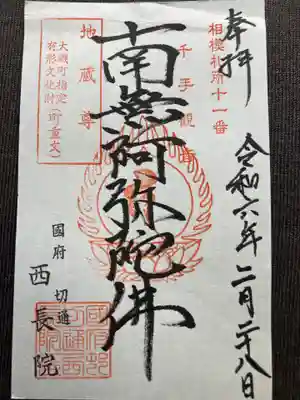 奉拝
令和六年二月二十八日
相模札所十一番
千手観音
南無阿弥陀佛
地蔵尊
大磯町指定
有形文化財(町重文)
國府 切通
西長院